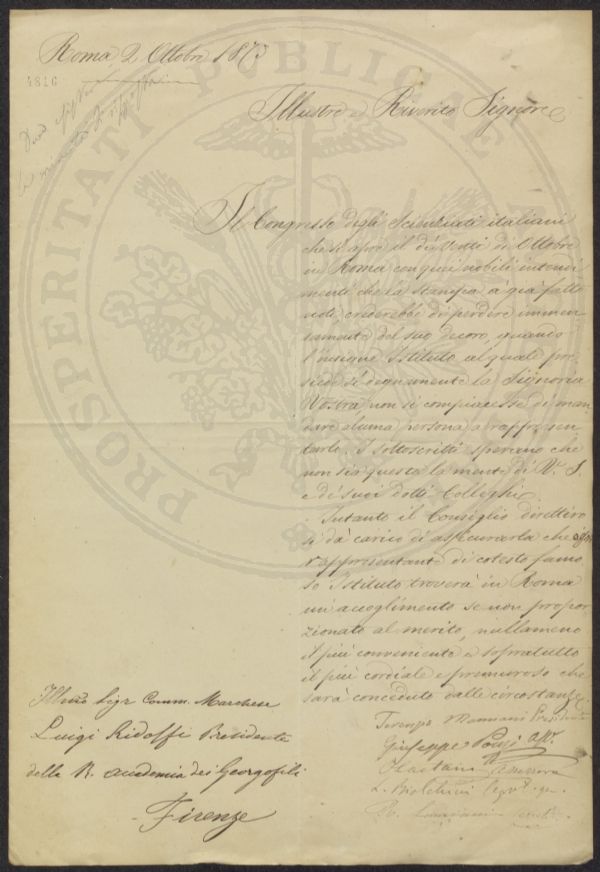 Roma 2 Ottobre 1873
4816
Illustre e Riverito Signore
Il Congresso degli Scienziati italiani
che si apre il dì venti di Ottobre
in Roma con quei nobili intendi
menti che la stampa à già fatto
noti, crederebbe di perdere immen
samente del suo decoro, quando
l'insigne Istituto al quale pre
siede sì degnamente la Signoria
Vostra, non si compiacesse di man
dare alcuna persona a rappresen
tarlo. I sottoscritti sperano che
non sia questa la mente di V. S.
e de' suoi dotti Colleghi.
Intanto il Consiglio direttivo
si dà carico di assicurarla che ogni
rappresentante di cotesto famo
so Istituto troverà in Roma
un'accoglimento se non propor
zionato al merito, nullameno
il più conveniente e sopratutto
il più cordiale e premuroso che
sarà conceduto dalle circostanze
Terenzio Mamiani Presidente
Giuseppe Ponzi
L. Biolchini
Illmo Sigr Comm. Marchese
Luigi Ridolfi Presidente
della R. Accademia dei Georgofili
Firenze
PROSPERITATI PUBLICAE